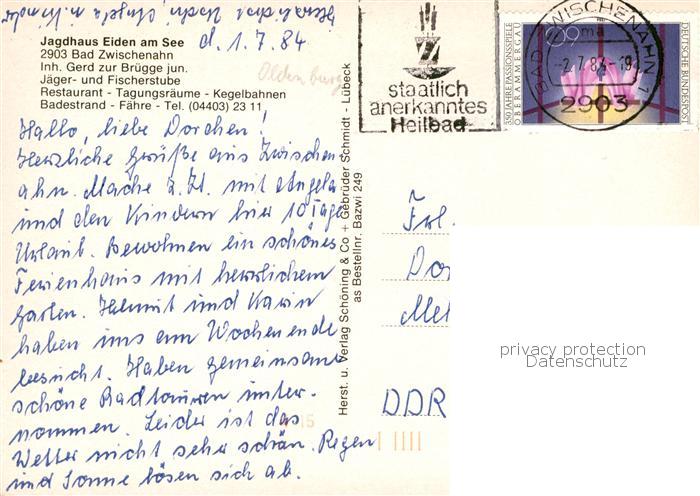 Jagdhaus Eiden am See
2903 Bad Zwischenahn
Inh. Gerd zur Brügge jun.
Jäger- und Fischerstube
Restaurant - Tagungsräume - Kegelbahnen
Badestrand - Fähre - Tel. (04403) 23 11
d. 1.7.84
Oldenburg
Hallo, liebe Dorchen!
Herzliche Grüße aus Zwischen
ahn. Mache z. Zt. mit Angela
und den Kindern hier 10 Tage
Urlaub. Bewohnen ein schönes
Ferienhaus mit herrlichem
Garten. Helmut und Karin
haben uns am Wochenende
besucht. Haben gemeinsame
schöne Radtouren unter-
nommen. Leider ist das
Wetter nicht sehr schön. Regen
und Sonne lösen sich ab.
Herzlichst
Herst. u. Verlag Schöning & Co + Gebrüder Schmidt - Lübeck
as Bestellnr. Bazwi 249
staatlich
anerkanntes
Heilbad
BAD ZWISCHENAHN 1
ma
-2.7.84-19
2903
60
350 JAHRE PASSIONSSPIELE
OBERAMMERGAU
DEUTSCHE BUNDESPOST
Frl.
Dor
Met
DDR
privacy protection
Datenschutz